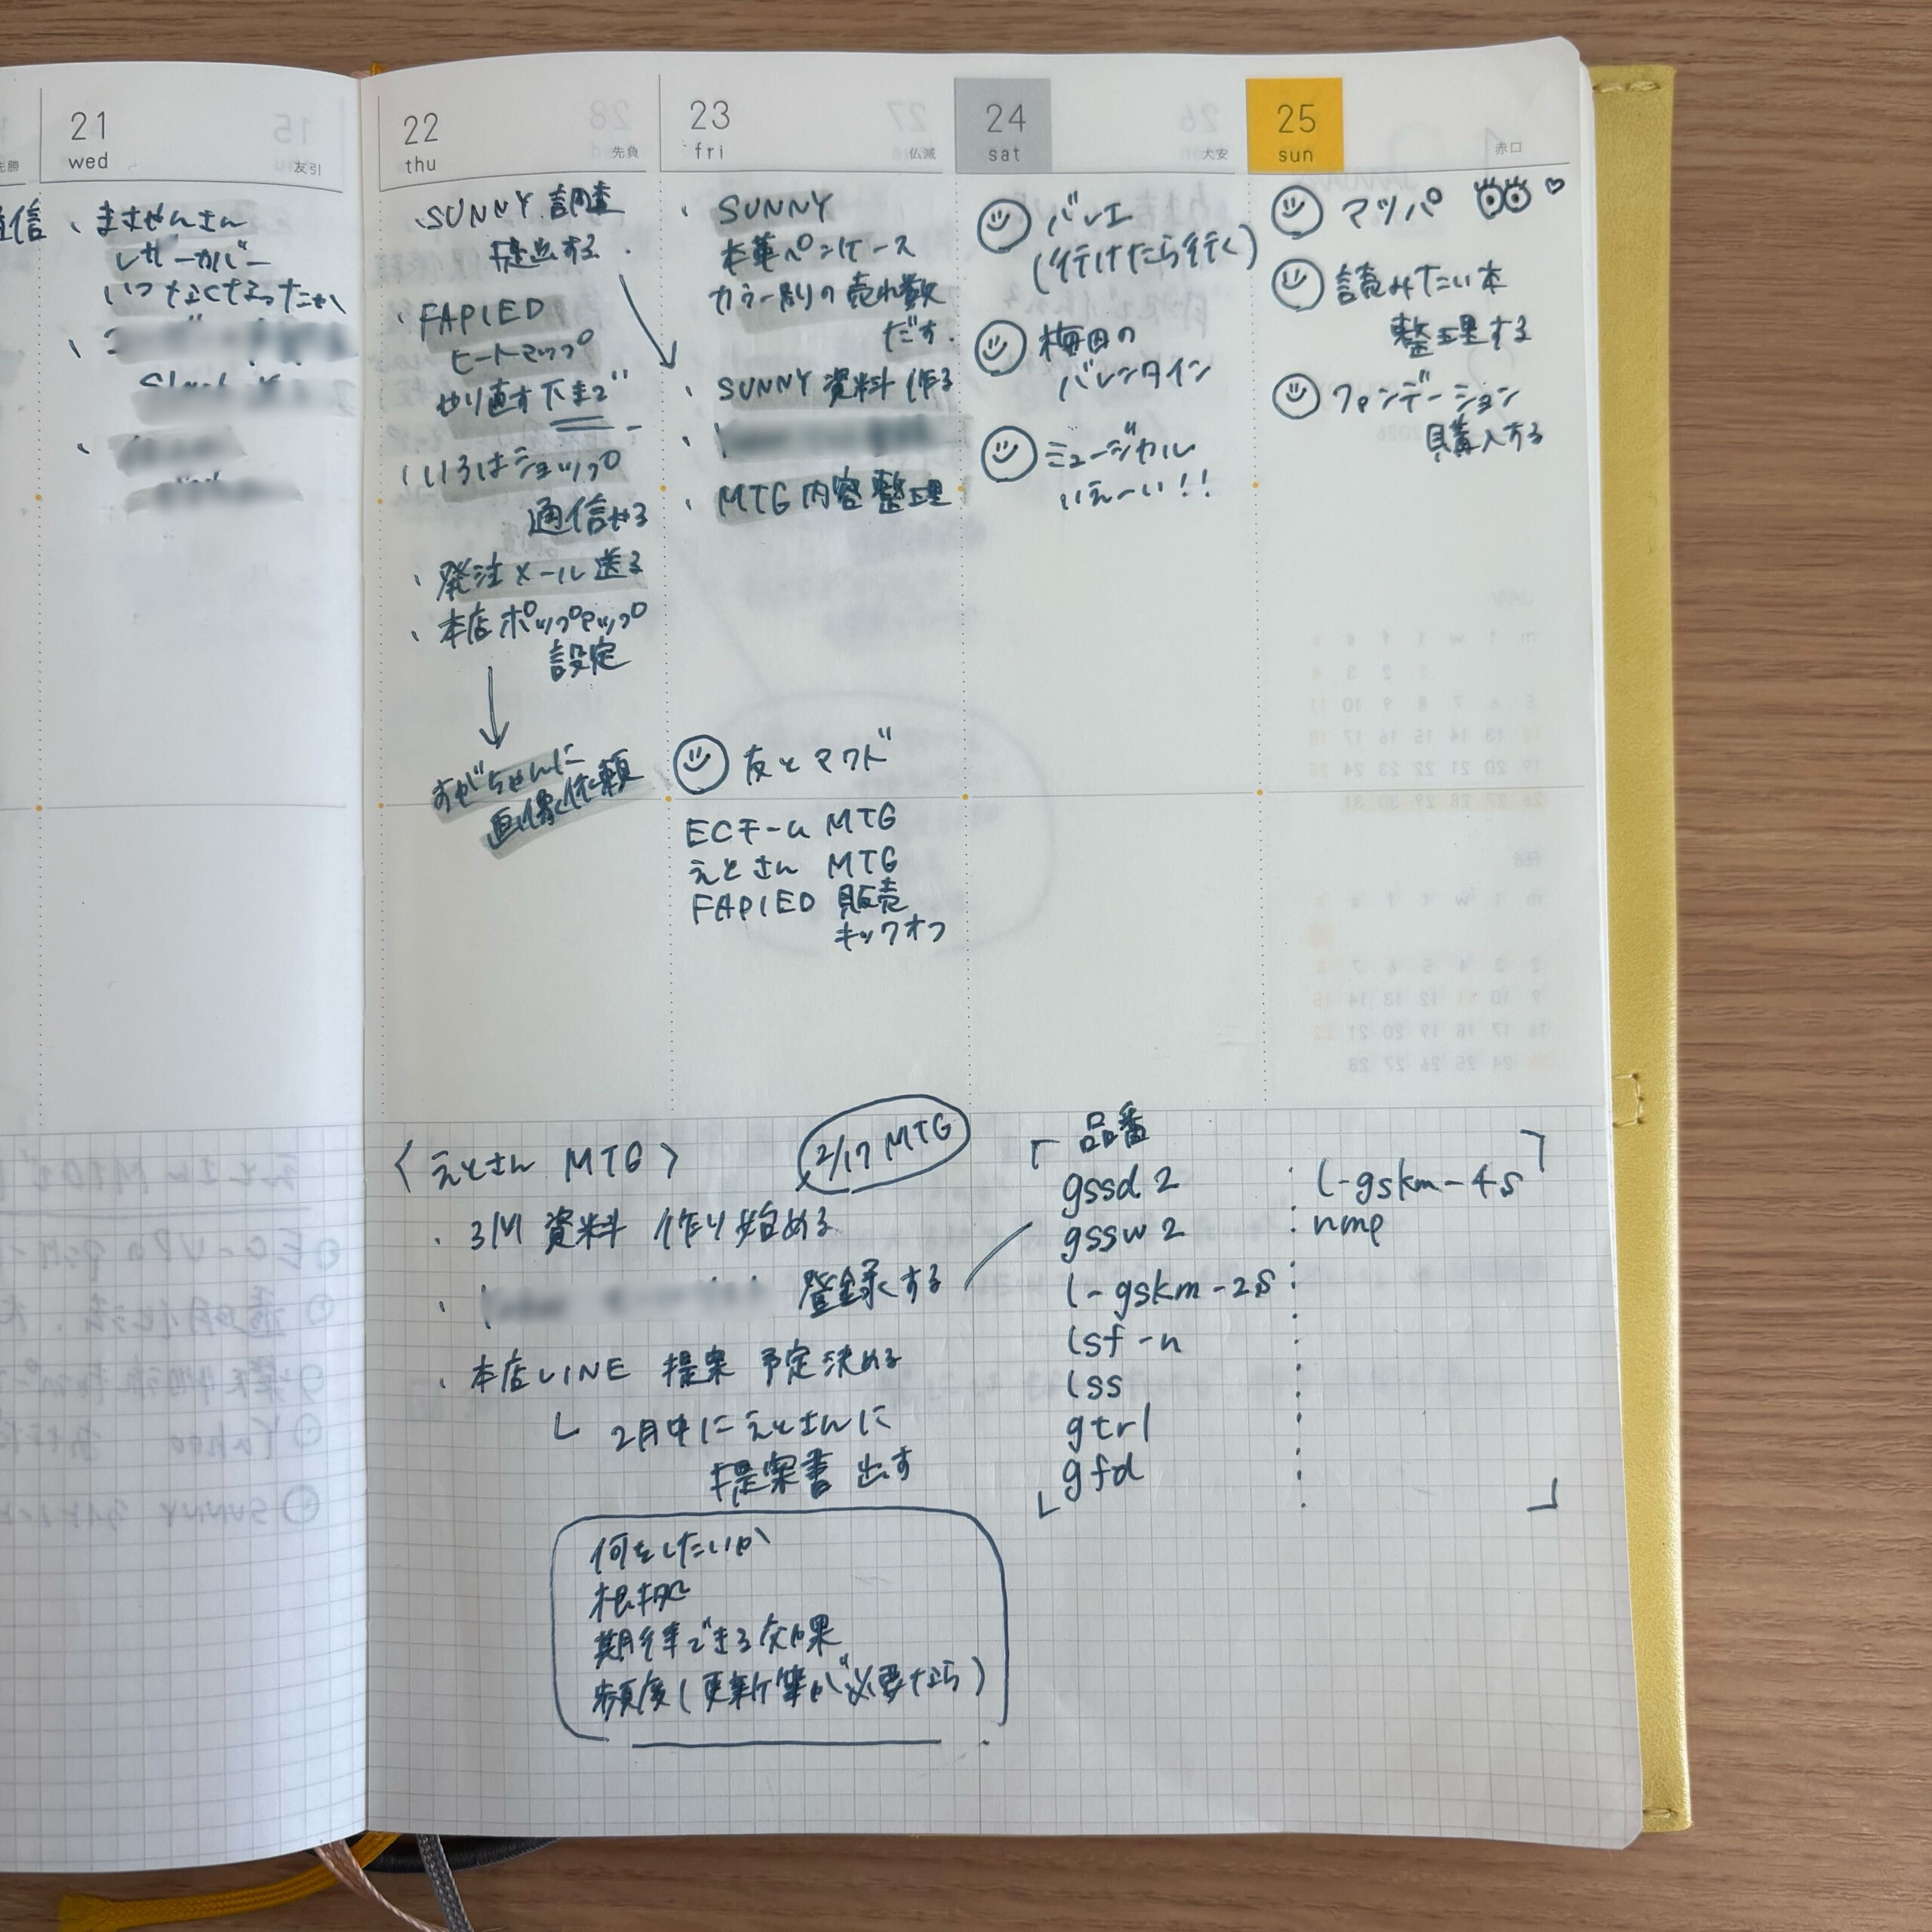 21
wed
友引
先勝
通信
・まさやんさん
レザーカバー
いつなくなったか
22
thu
先負
・SUNNY 調査
提出する
・FAPIED
ヒートマップ
やり直す 下まで
・いろはショップ
通信やる
・発注メール送る
・本店ポップアップ
設定
すがちゃんに
画像依頼
23
fri
仏滅
・SUNNY
本革ペンケース
カラー別の売れ数
だす.
・SUNNY 資料作る
・MTG内容整理
友とマクド
ECチーム MTG
えとさん MTG
FAPIED 販売
キックオフ
24
sat
大安
バレエ
(行けたら行く)
梅田の
バレンタイン
ミュージカル
いえーい!!
25
sun
赤口
マツパ
読みたい本
整理する
ファンデーション
購入する
〈えとさん MTG〉
2/17 MTG
・3M 資料 作り始める
・ 登録する
・本店LINE 提案 予定決める
└ 2月中にえとさんに
提案書 出す
何をしたいか
根拠
期待できる効果
頻度(更新等が必要なら)
「品番
gssd2 : l-gskm-4s
gssw2 : nmp
l-gskm-2s :
lsf-n
lss
gtrl
gfd
」